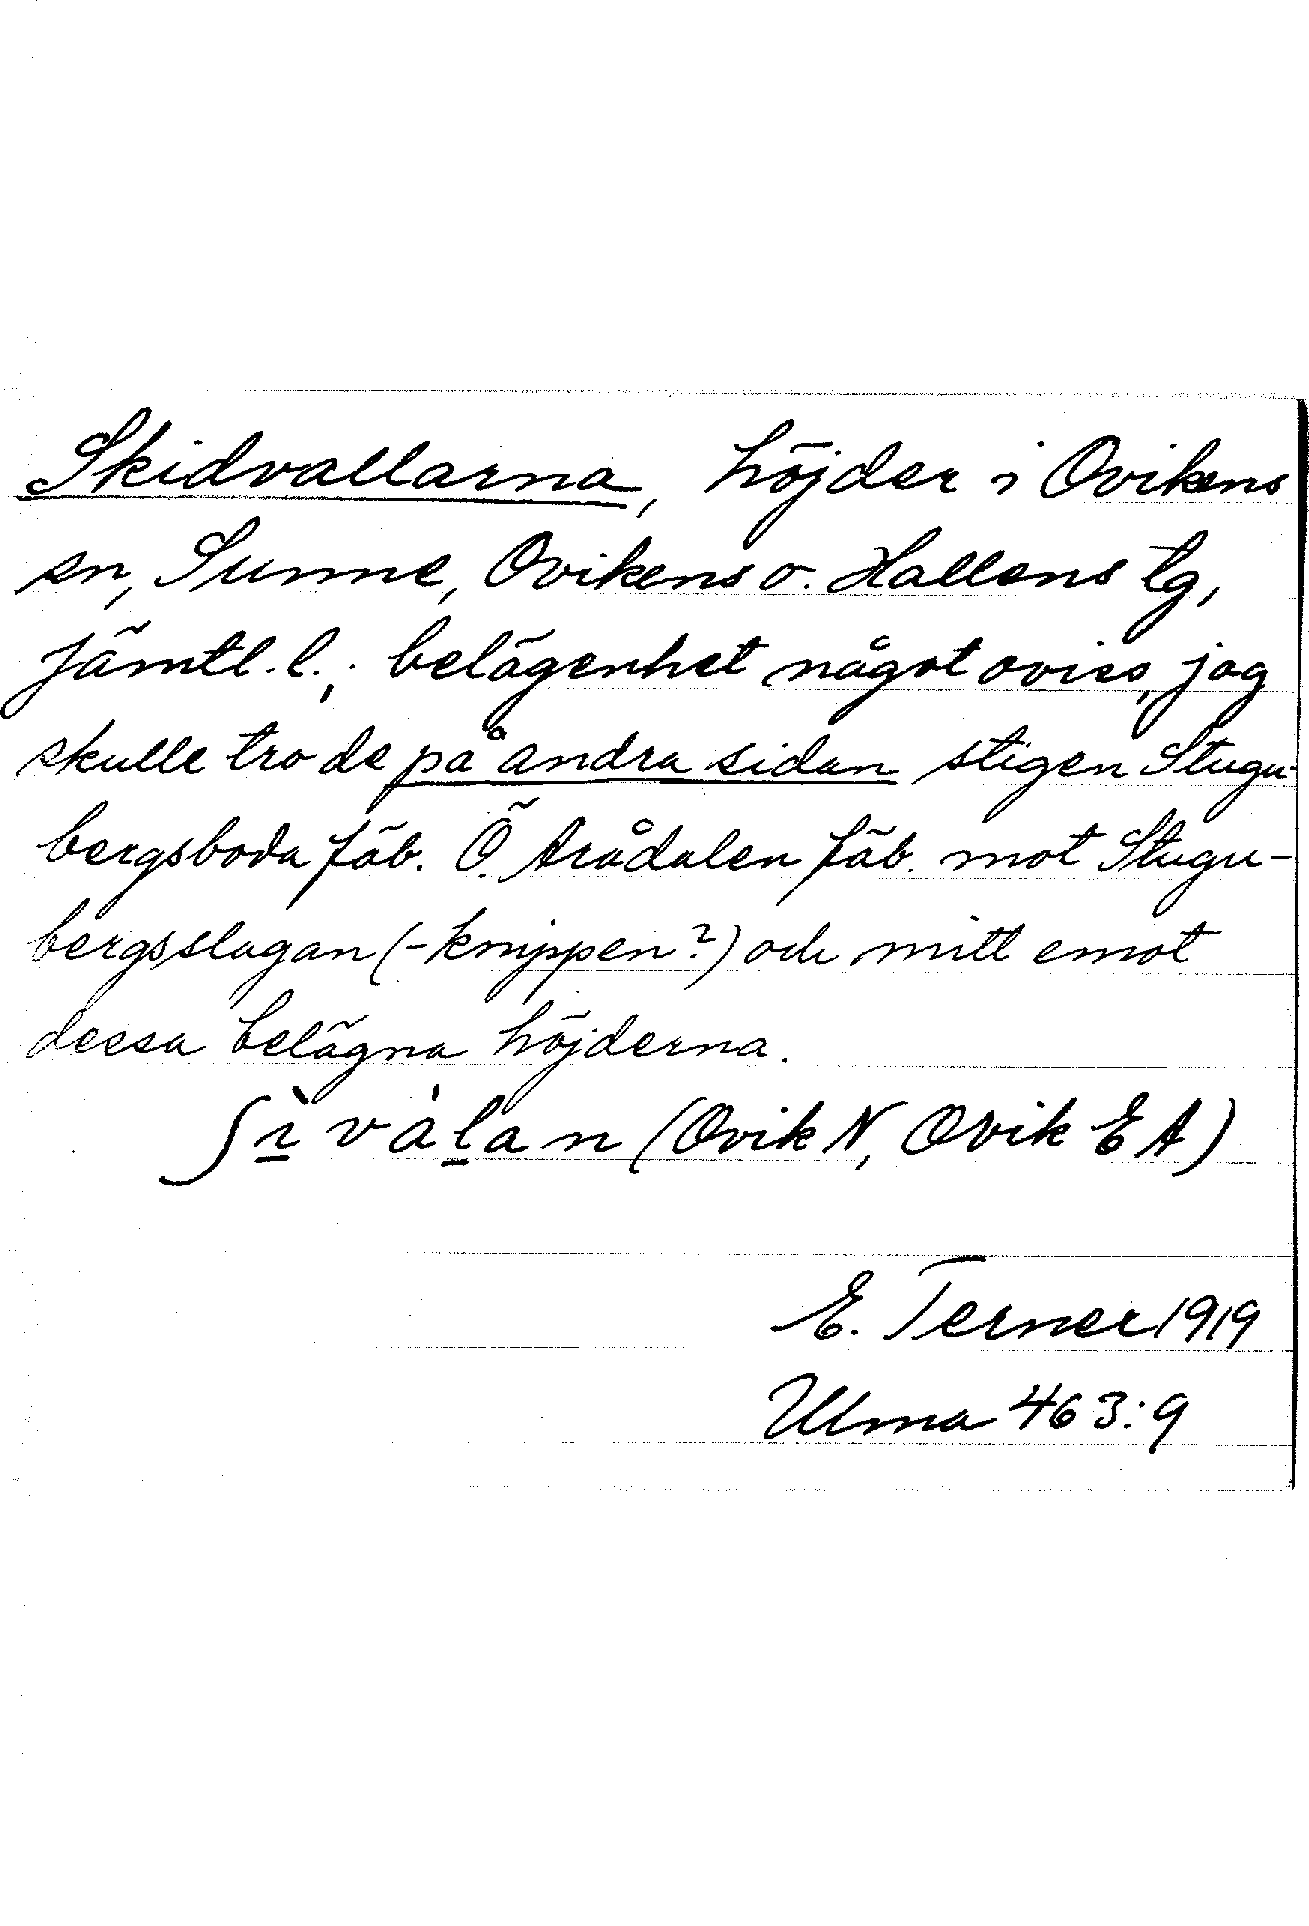 Skidvallarna, höjder i Ovikens
sn, Sunne, Ovikens o. Hallens tg,
Jämtl. l.; belägenhet något oviss, jag
skulle tro de på andra sidan stigen Stugu-
bergsboda fäb. Ö. Arådalen fäb. mot Stugu-
bergsslagan (-knippen?) och mitt emot
dessa belägna höjderna.
ʃì̠ vàl̠an (Ovik N, Ovik E A)
E. Terner 1919
Ulma 463:9